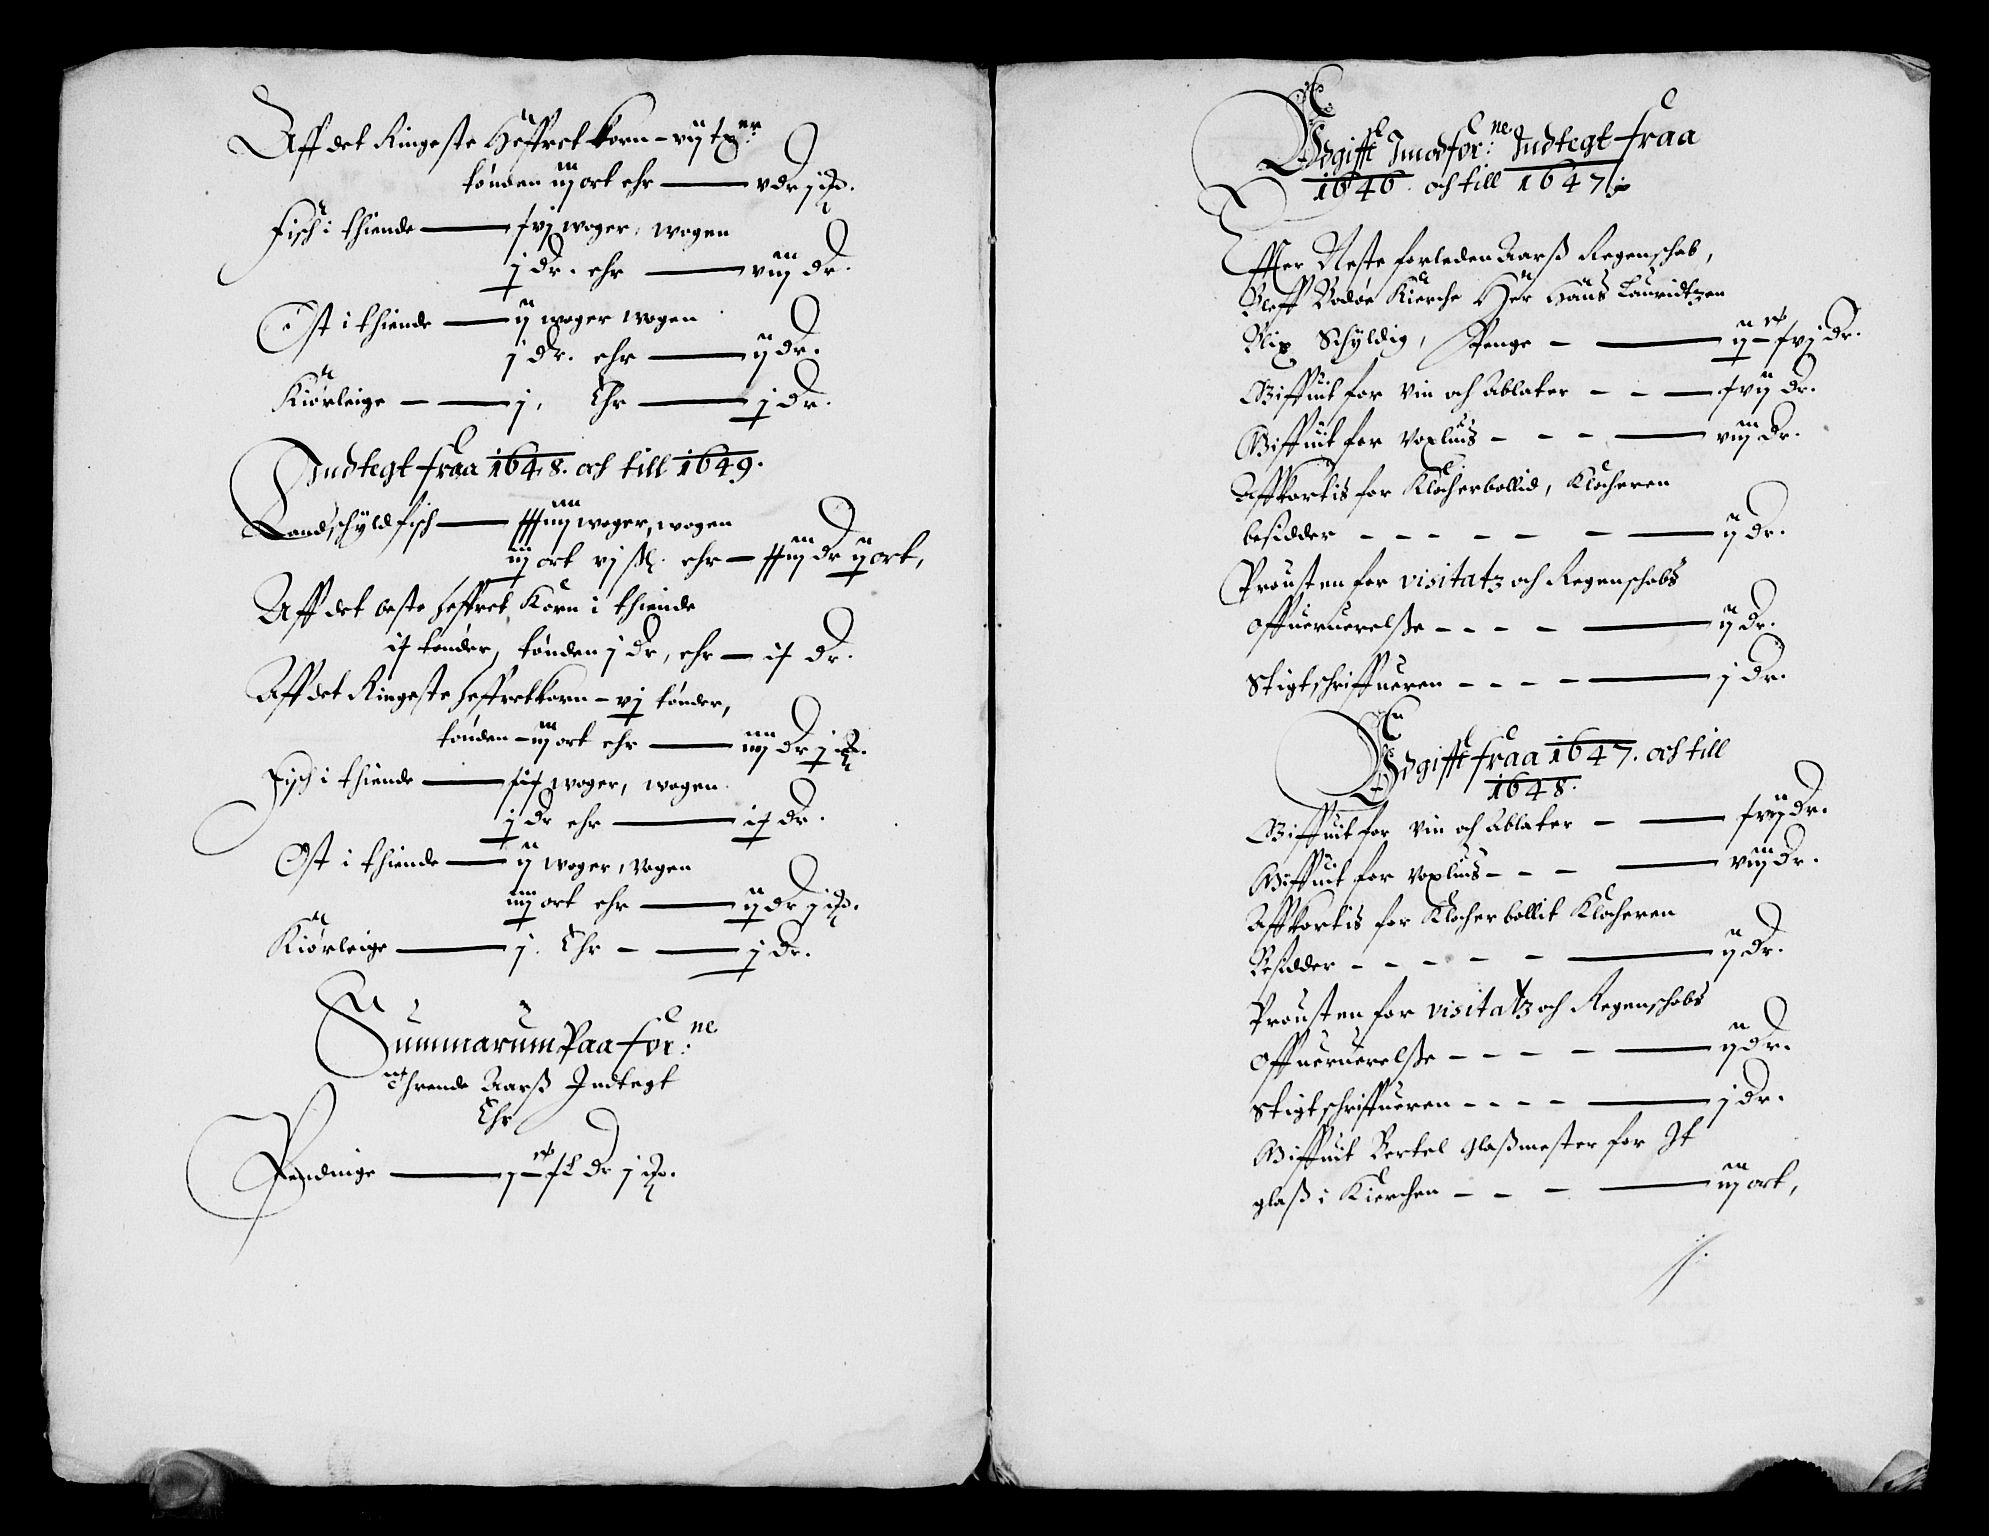 Aff det Ringeste Heffret korn - vij tøer
tønden iij ort ehr — v dr j
Fisch i thiende — xvj woger, wogen
j dr. ehr — viij dr.
Ost i thiende — ij woger wogen
j dr. ehr — ij dr.
Kiørleige — j, Ehr — j dr.
Indtegt fraa 1648. och till 1649.
Landschyld fisch — xxxiiij woger, wogen
iij ort vj ß. ehr — xxiij dr ij ort,
Aff det beste heffret Korn i thiende
ix tønder, tønden j dr, ehr — ix dr.
Aff det Ringeste heffret korn - vj tønder,
tønden - iij ort ehr — iiij dr j
Fisch i thiende — xix woger, wogen
j dr ehr — ix dr.
Ost i thiende — ij woger, vogen
iiij ort ehr — ij dr j
Kiørleige — j. Ehr - — j dr.
Summarum Paa for:ne
thrende Aarß Indtegt
Ehr
Pendinge — j c xl dr j
Udgifft Imod for:ne Indtegt fraa
1646. och till 1647
Effter Neste forleden Aarß Regenschab,
Bleff Bodøe Kierche Her Hans Lauridtzen
Rix Schyldig, Penge - — ij c xvj dr.
Giffuit for vin och Ablater - - — xvij dr.
Giffuit for voxlius - - - — viij dr.
Affkortis for Klocherbollid, Klocheren
besidder - - - - - - — ij dr.
Prousten for visitatz och Regenschabs
offueruerelße - - - - — ij dr.
Stigtschriffueren - - - - — j dr.
Udgifft fraa 1647. och till
1648.
Giffuit for vin och Ablater - — xvij dr.
Giffuit for voxlius - - - — viij dr.
Affkortis for Klocherbollit Klocheren
Besidder - - - - - — ij dr.
Prousten for visitatz och Regenschabs
Offueruerelße - - - - — ij dr.
Stigtschriffueren - - - - — j dr.
Giffuit Bertel Glaßmester for It
glaß i Kierchen - - - — iij ort,